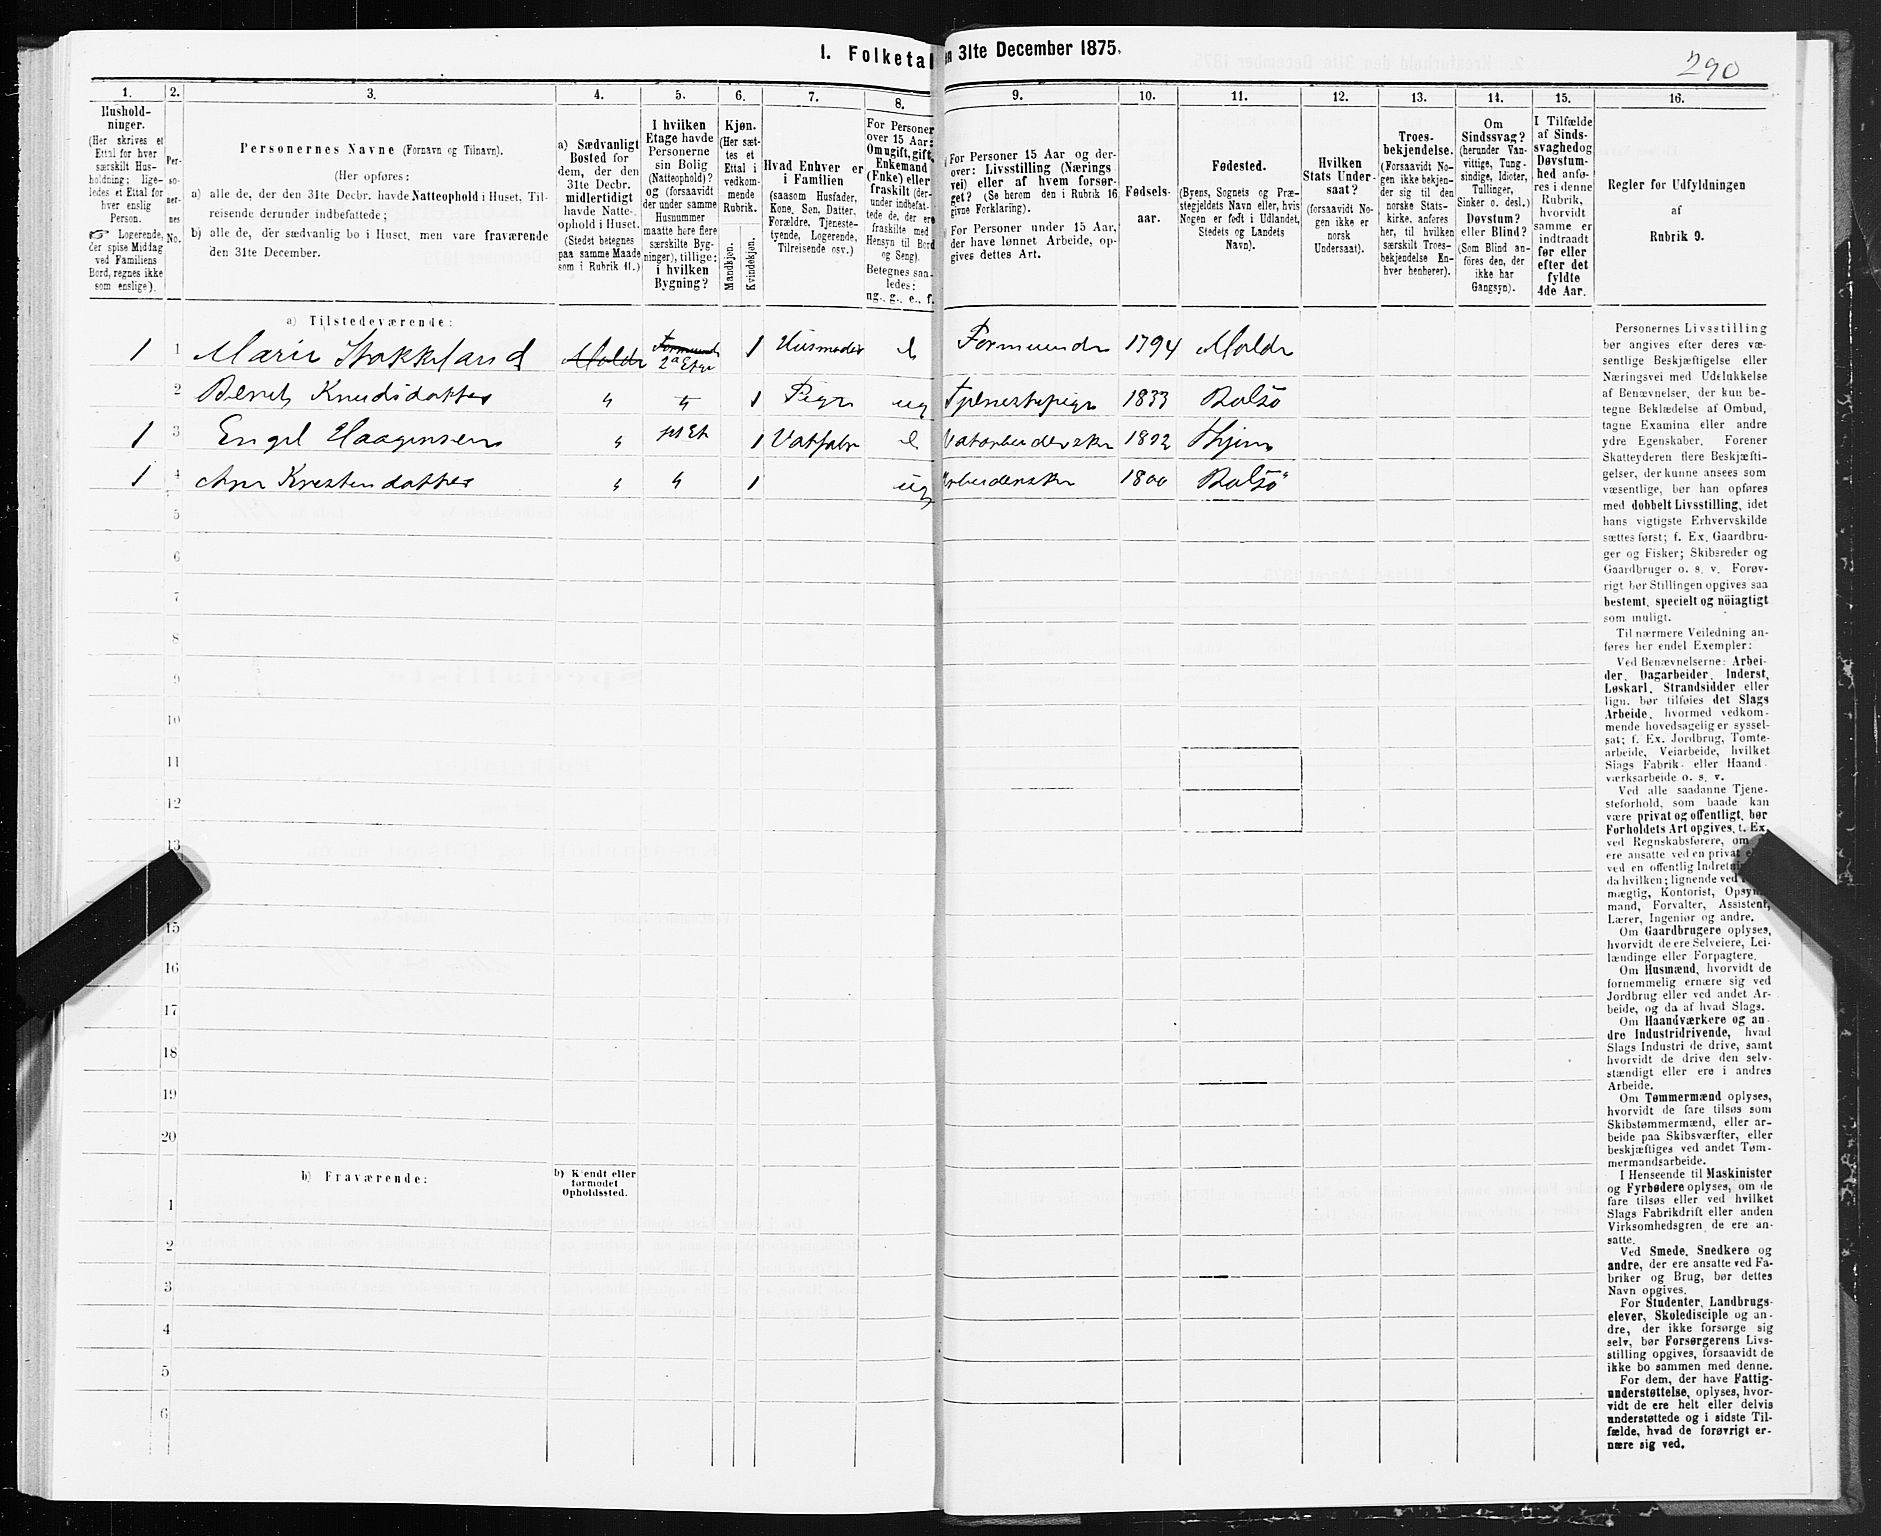 I. Folketal
en 31te December 1875.
290
1. 2. 3. 4. 5. 6. 7. 8. 9. 10. 11. 12. 13. 14. 15. 16.
Hushold-
ninger.
(Her skrives et
Ettal for hver
særskilt Hus-
holdning; lige-
ledes et Ettal for
hver enslig
Person.
☞ Logerende,
der spise Middag
ved Familiens
Bord, regnes ikke
som enslige).
Per-
so-
ner-
nes
No.
Personernes Navne (Fornavn og Tilnavn).
(Her opføres:
a) alle de, der den 31te Decbr. havde Natteophold i Huset, Til-
reisende derunder indbefattede;
b) alle de, der sædvanlig bo i Huset, men vare fraværende
den 31te December.
a) Sædvanligt
Bosted for
dem, der den
31te Decbr.
midlertidigt
havde Natte-
ophold i Huset.
(Stedet betegnes
paa samme Maade
som i Rubrik 11.)
I hvilken
Etage havde
Personerne
sin Bolig
(Natteophold)?
og (forsaavidt
der under samme
Husnummer
maatte høre flere
særskilte Byg-
ninger), tillige:
i hvilken
Bygning?
Kjøn.
(Her sæt-
tes et
Ettal i
vedkom-
mende
Rubrik.
Mandkjøn.
Kvindekjøn.
Hvad Enhver er
i Familien
(saasom Husfader,
Kone, Søn, Datter,
Forældre, Tjeneste-
tyende, Logerende,
Tilreisende osv.)
For Personer
over 15 Aar:
Om ugift, gift,
Enkemand
(Enke) eller
fraskilt (der-
under indbefat-
tede de, der ere
fraskilte med
Hensyn til Bord
og Seng).
Betegnes saa-
ledes:
ug., g., e., f.
For Personer 15 Aar og der-
over: Livsstilling (Nærings
vei) eller af hvem forsør-
get? (Se herom den i Rubrik 16
givne Forklaring).
For Personer under 15 Aar,
der have lønnet Arbeide, op-
gives dettes Art.
Fødsels-
aar.
Fødested.
(Byens, Sognets og Præ-
stegjeldets Navn eller, hvis
Nogen er født i Udlandet,
Stedets og Landets
Navn).
Hvilken
Stats Under-
saat?
(forsaavidt No-
gen ikke er
norsk
Undersaat).
Troes-
bekjendelse.
(Forsaavidt No-
gen ikke bekjen-
der sig til den
norske Stats-
kirke, anføres
her, til hvilken
særskilt Troes-
bekjendelse En-
hver henhører).
Om
Sindssvag?
(herunder Van-
vittige, Tung-
sindige, Idioter,
Tullinger,
Sinker o. desl.)
Døvstum?
eller Blind?
(Som Blind an-
føres den, der
ikke har
Gangsyn).
I Tilfælde
af Sinds-
svaghed og
Døvstum-
hed anfø-
res i denne
Rubrik,
hvorvidt
samme er
indtraadt
før eller
efter det
fyldte
4de Aar.
Regler for Udfyldningen
af
Rubrik 9.
a) Tilstedeværende:
1 1 Marie Stokkeland Molde 2a Etge 1 Husmoder e Formuende 1794 Molde
2 Beret Knudsdatter " " 1 Pige ug Tjenestepige 1833 Bolsø
1 3 Engel Haagensen " 1st Et 1 Vatfabr e Vatarbeiderske 1822
1 4 Ane Krestensdatter " " 1 ug Arbeiderske 1800 Bolsø
5
6
7
8
9
10
11
12
13
15
16
17
18
19
20
b) Fraværende:
b) Kjendt eller
formodet
Opholdssted.
1
2
3
4
5
6
Personernes Livsstilling
bør angives efter deres væ-
sentlige Beskjæftigelse eller
Næringsvei med Udelukkelse
af Benævnelser, der kun be-
tegne Beklædelse af Ombud,
tagne Examina eller andre
ydre Egenskaber. Forener
Skatteyderen flere Beskjæfti-
gelser, der kunne ansees som
væsentlige, bør han opføres
med dobbelt Livsstilling, idet
hans vigtigste Erhvervskilde
sættes først; f. Ex. Gaardbru-
ger og Fisker; Skibsreder og
Gaardbruger o. s. v. Forøv-
rigt bør Stillingen opgives saa
bestemt, specielt og nöiagtigt
som muligt.
Til nærmere Veiledning an-
føres her endel Exempler:
Ved Benævnelserne: Arbei-
der, Dagarbeider, Inderst,
Løskarl, Strandsidder eller
lign. bør tilføies det Slags
Arbeide, hvormed vedkom-
mende hovedsagelig er syssel-
sat; f. Ex. Jordbrug, Tomte-
arbeide, Veiarbeide, hvilket
Slags Fabrik- eller Haand-
værksarbeide o. s. v.
Ved alle saadanne Tjene-
steforhold, som baade kan
være privat og offentligt, bør
Forholdets Art opgives, t. Ex.
ved Regnskabsførere, om
ere ansatte ved en privat
ved en offentlig
da hvilken; lignende ved
mægtig, Kontorist,
mand, Forvalter, Assistent,
Lærer, Ingeniør og andre.
Om Gaardbrugere oplyses,
hvorvidt de ere Selveiere, Lei-
lændinge eller Forpagtere.
Om Husmænd, hvorvidt de
fornemmelig ernære sig ved
Jordbrug eller ved andet Ar-
beide, og da af hvad Slags.
Om Haandværkere og an-
dre Industridrivende, hvad
Slags Industri de drive, samt
hvorvidt de drive den selv-
stændigt eller ere i andres
Arbeide.
Om Tømmermænd oplyses,
hvorvidt de fare tilsøs som
Skibstømmermænd, eller ar-
beide paa Skibsværfter, eller
beskjæftiges ved andet Tøm-
mermandsarbeide.
I Henseende til Maskinister
og Fyrbødere oplyses, om de
fare tilsøs eller ved hvilket
Slags Fabrikdrift eller anden
Virksomhedsgren de ere an-
satte.
Ved Smede, Snedkere og
andre, der ere ansatte ved Fa-
briker og Brug, bør dettes
Navn opgives.
For Studenter, Landbrugs-
elever, Skoledisciple og an-
dre, der ikke forsørge sig
selv, bør Forsørgerens Livs-
stilling opgives, forsaavidt de
ikke bo sammen med denne.
For dem, der have Fattig-
understøttelse, oplyses, hvor-
vidt de ere helt eller delvis
understøttede og i sidste Til-
fælde, hvad de forøvrigt er-
nære sig ved.